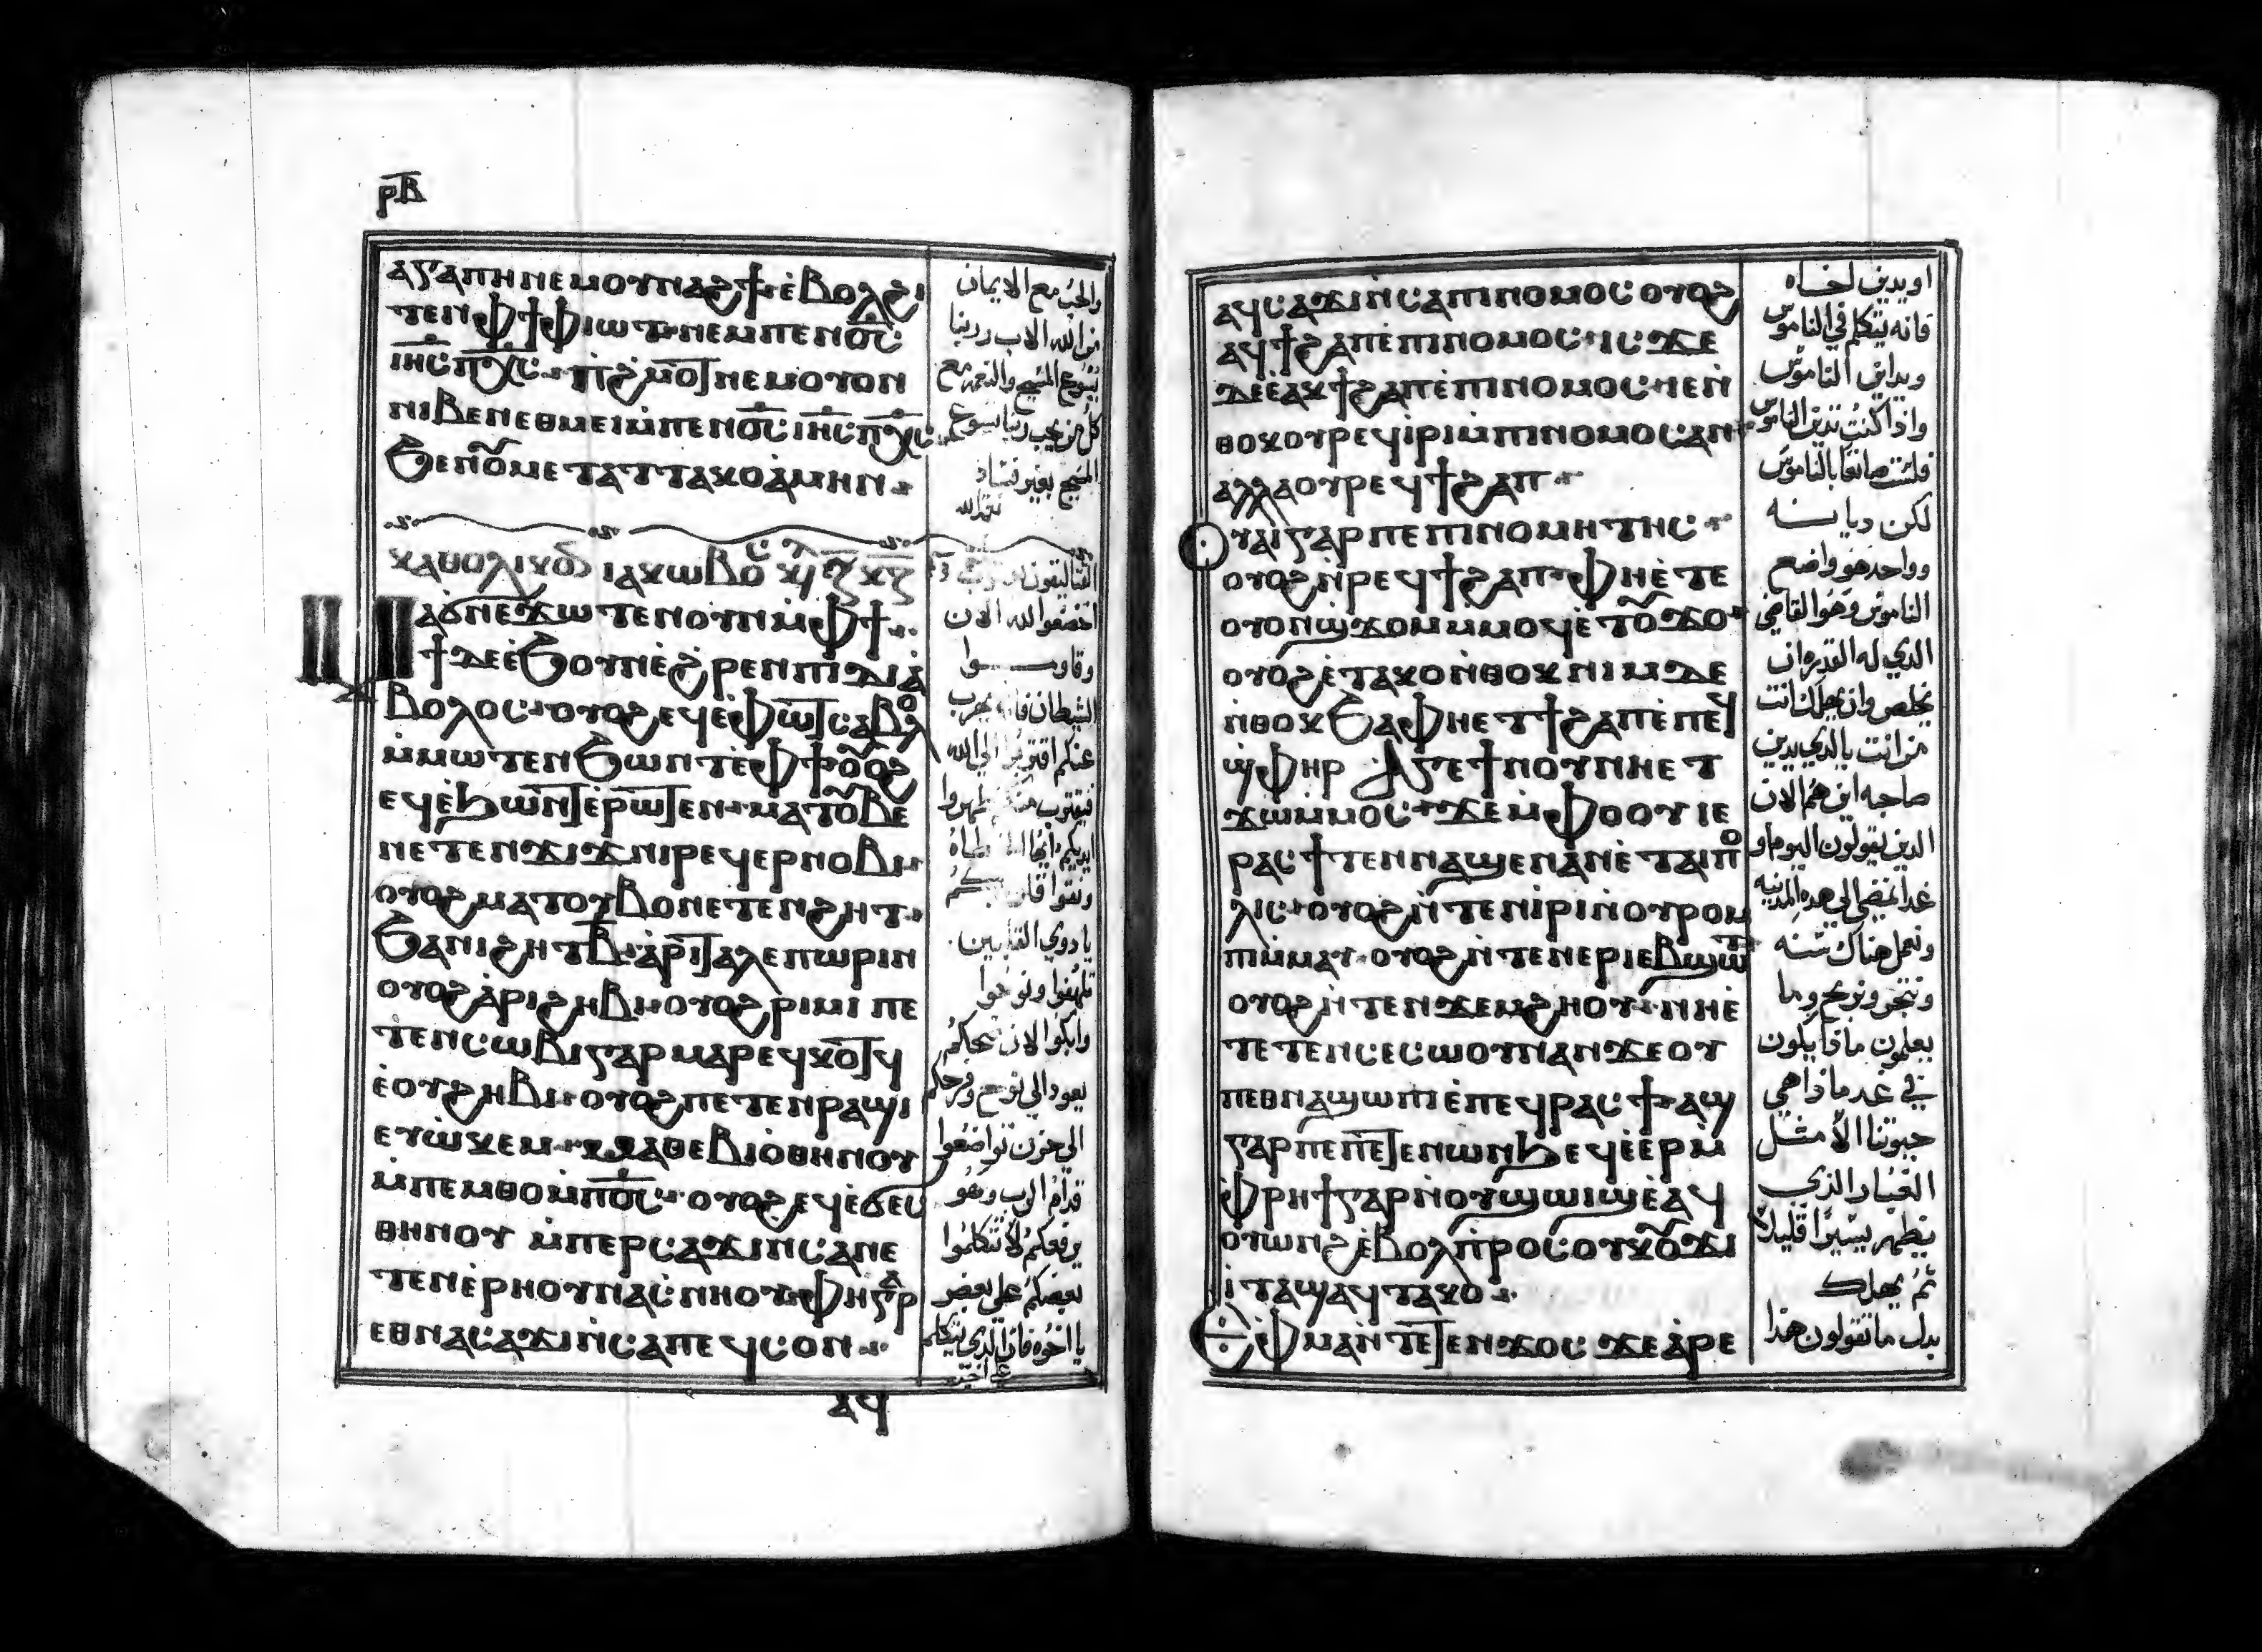 ⲣ̅ⲃ̅
ⲁⲅⲁⲡⲏ ⲛⲉⲙ ⲟⲩⲛⲁϩϯ ⲉ̀ⲃⲟⲗϩⲓ
ⲧⲉⲛ ⲫϯ ⲫⲓⲱⲧ ⲛⲉⲙ ⲡⲉⲛⲟ̅ⲥ̅
ⲓⲏ̅ⲥ̅ ⲡⲭ̅ⲥ̅ ⲡ̀ϩⲙⲟⲧ ⲛⲉⲙ ⲟⲩⲟⲛ
ⲛⲓⲃⲉⲛ ⲉⲑⲙⲉⲓ ⲙ̀ⲡⲉⲛⲟ̅ⲥ̅ ⲓⲏ̅ⲥ̅ ⲡⲭ̅ⲥ̅
ϧⲉⲛ ⲟ̅ⲙⲉⲧⲁⲧⲧⲁⲕⲟ ⲁ̀ⲙⲏⲛ
ⲕⲁⲑⲟⲗⲓⲕⲟⲛ ⲓⲁⲕⲱⲃⲟⲥ
ⲙⲁϭⲛⲉϫⲱⲧⲉⲛ ⲟⲩⲛ ⲙ̀ⲫϯ
ϯ ⲇⲉ ⲉ̀ϧⲟⲩⲛ ⲉ̀ϩⲣⲉⲛ ⲡⲓⲇⲓⲁ̀
ⲃⲟⲗⲟⲥ ⲟⲩⲟϩ ⲉϥⲉ̀ⲫⲱⲧ ⲥⲁⲃⲟⲗ
ⲙ̀ⲙⲱⲧⲉⲛ ϧⲱⲛⲧ ⲉ̀ⲫϯ ⲟⲟϩ
ⲉϥⲉ̀ϧⲱⲛⲧ ⲉ̀ⲣⲱⲧⲉⲛ ⲙⲁⲧⲟⲃⲉ
ⲛⲉⲧⲉⲛϫⲓϫ ⲛⲓⲣⲉϥⲉⲣⲛⲟⲃⲓ
ⲟⲩⲟϩ ⲙⲁⲧⲟⲩⲃⲟ ⲛⲉⲧⲉⲛϩⲏⲧ
ϧⲁ ⲛⲓϩⲏⲧ ⲃ̅ ⲁ̀ⲣⲓⲧⲁⲗⲉⲡⲱⲣⲓⲛ
ⲟⲩⲟϩ ⲁ̀ⲣⲓϩⲏⲃⲓ ⲟⲩⲟϩ ⲣⲓⲙⲓ ⲡⲉ
ⲧⲉⲛⲥⲱⲃⲓ ⲅⲁⲣ ⲙⲁⲣⲉϥⲕⲟⲧϥ
ⲉ̀ⲟⲩϩⲏⲃⲓ ⲟⲩⲟϩ ⲡⲉⲧⲉⲛⲣⲁϣⲓ
ⲉⲩⲱ̀ⲕⲉⲙ ⲙⲁⲑⲉⲃⲓⲟ̀ⲑⲏⲛⲟⲩ
ⲙ̀ⲡⲉⲙⲑⲟ ⲙ̀ⲡⲟ̅ⲥ̅ ⲟⲩⲟϩ ⲉϥⲉ̀ϭⲉⲥ
ⲑⲏⲛⲟⲩ ⲙ̀ⲡⲉⲣⲥⲁϫⲓ ⲛⲥⲁ ⲛⲉ
ⲧⲉⲛⲉ̀ⲣⲏⲟⲩ ⲛⲁⲥ̀ⲛⲏⲟⲩ ⲫⲏ ⲅⲁⲣ
ⲉⲑⲛⲁⲥⲁϫⲓ ⲛ̀ⲥⲁ ⲡⲉϥⲥⲟⲛ
ⲁϥ
والحب مع الايمان
من الله الاب وربنا
يسوع المسيح والنعمه مع
كل من يحب ربنا يسوع
المسيح بغير فساد
اخضعوا لله الان
وقاوموا
الشيطان فانه يهرب
عنكم اقتربوا الي الله
فيقترب منكم طهروا
ايديكم ايها الخطاه
ونقوا قلوبكم
يا دوي القلبين
تلهفوا ونوحوا
وابكوا الان ضحككم
يعود الي نوح وفرحكم
الي حزن تواضعوا
قدام الرب وهو
يرفعكم لا تتكلموا
بعضكم علي بعض
يا اخوه فان الذي يتكلم
علي اخيه
ⲁϥⲥⲁϫⲓ ⲛ̀ⲥⲁ ⲡⲓⲛⲟⲙⲟⲥ ⲟⲩⲟϩ
ⲁϥϯϩⲁⲡ ⲉ̀ⲡⲓⲛⲟⲙⲟⲥ ⲓⲥϫⲉ
ⲇⲉ ⲉ̀ⲁⲕϯϩⲁⲡ ⲉ̀ⲡⲓⲛⲟⲙⲟⲥ ⲓⲉ ⲛ̀
ⲑⲟⲕ ⲟⲩⲣⲉϥⲓ̀ⲣⲓ ⲙ̀ⲡⲓⲛⲟⲙⲟⲥ ⲁⲛ
ⲁⲗⲗⲁ ⲟⲩⲣⲉϥϯϩⲁⲡ
ⲟⲩⲁⲓ ⲅⲁⲣ ⲡⲉ ⲡⲓⲛⲟⲙⲏⲧⲏⲥ
ⲟⲩⲟϩ ⲛ̀ⲣⲉϥϯϩⲁⲡ ⲫⲏ ⲉ̀ⲧⲉ
ⲟⲩⲟⲛϣϫⲟⲙ ⲙⲙⲟϥ ⲉ̀ⲧⲟϫⲟ
ⲟⲩⲟϩ ⲉ̀ⲧⲁⲕⲟ ⲛ̀ⲑⲟⲕ ⲛⲓⲙ ⲇⲉ
ⲛ̀ⲑⲟⲕ ϧⲁ ⲫⲏⲉⲧϯϩⲁⲡ ⲉ̀ⲡⲉϥ
ϣ̀ⲫⲏⲣ ⲁⲅⲉ ϯⲛⲟⲩ ⲛⲏⲉⲧ
ϫⲱⲙⲙⲟⲥ ϫⲉ ⲙ̀ⲫⲟⲟⲩ ⲓⲉ
ⲣⲁⲥϯ ⲧⲉⲛⲛⲁϣⲉⲛⲁⲛ ⲉ̀ⲧⲁⲓⲡⲟ
ⲗⲓⲥ ⲟⲩⲟϩ ⲛ̀ⲧⲉⲛⲓ̀ⲣⲓ ⲛ̀ⲟⲩⲣⲟⲙ
ⲡⲓ ⲙ̀ⲙⲁⲩ ⲟⲩⲟϩ ⲛ̀ⲧⲉⲛⲉⲣⲓⲉⲃϣⲱⲧ
ⲟⲩⲟϩ ⲛ̀ⲧⲉⲛϫⲉⲙϩⲏⲟⲩ ⲛⲏⲉ̀
ⲧⲉⲧⲉⲛⲥⲉⲥⲱⲟⲩⲛ ⲁⲛ ϫⲉ ⲟⲩ
ⲡⲉⲑⲛⲁϣⲱⲡⲓ ⲉ̀ⲡⲉϥⲣⲁⲥϯ ⲁϣ
ⲅⲁⲣ ⲡⲉ ⲡⲉⲧⲉⲛⲱⲛϧ ⲉϥⲉ̀ⲉⲣ ⲙ̀
ⲫⲣⲏϯ ⲅⲁⲣ ⲛ̀ⲟⲩϣⲱⲓϣ ⲉ̀ⲁϥ
ⲟⲩⲱⲛϩ ⲉ̀ⲃⲟⲗ ⲡ̀ⲣⲟⲥ ⲟⲩⲕⲟϫⲓ
ⲓ̀ⲧⲁ ϣⲁϥⲧⲁⲕⲟ
ⲉ̀ⲫⲙⲁ ⲛ̀ⲧⲉⲧⲉⲛϫⲟⲥ ϫⲉ ⲁ̀ⲣⲉ
او يدين اخاه
فانه يتكلم في الناموس
ويدين الناموس
واذا كنت تدين الناموس
فلست صانعا بالناموس
لكن ديانه
وواحد هو واضع
الناموس وهو القاضي
الذي له القدره ان
يخلص وان يهلك انت
من انت يا الذي يدين
صاحبه اين هم الان
الذين يقولون اليوم او
غدا نمضي الي هذه المدنيه
ونعمل هناك سنه
ونتجر ونربح وما
يعلمون ماذا يكون
في غد ماذا هي
حيوتنا الا مثل
الغبار الذي
يظهر يسيرا قليلا
ثم يهلك
بدل ما تقولون هذا